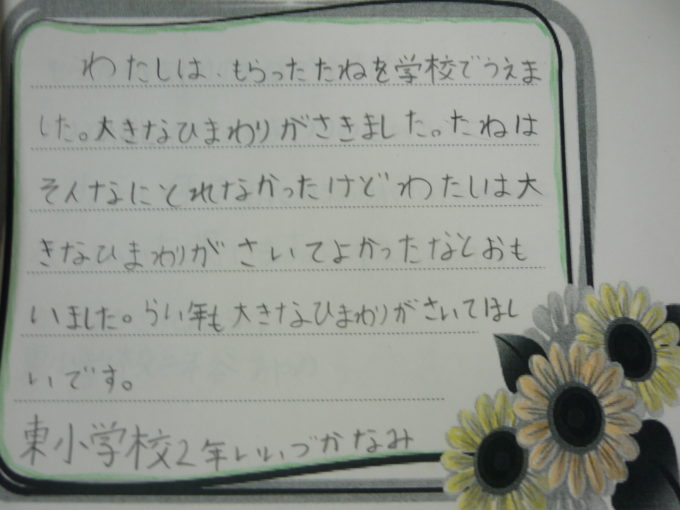 わたしは、もらったたねを学校でうえま
した。大きなひまわりがさきました。たねは
そんなにとれなかったけどわたしは大
きなひまわりがさいてよかったなとおも
いました。らい年も大きなひまわりがさいてほし
いです。
東小学校2年いいづかなみ